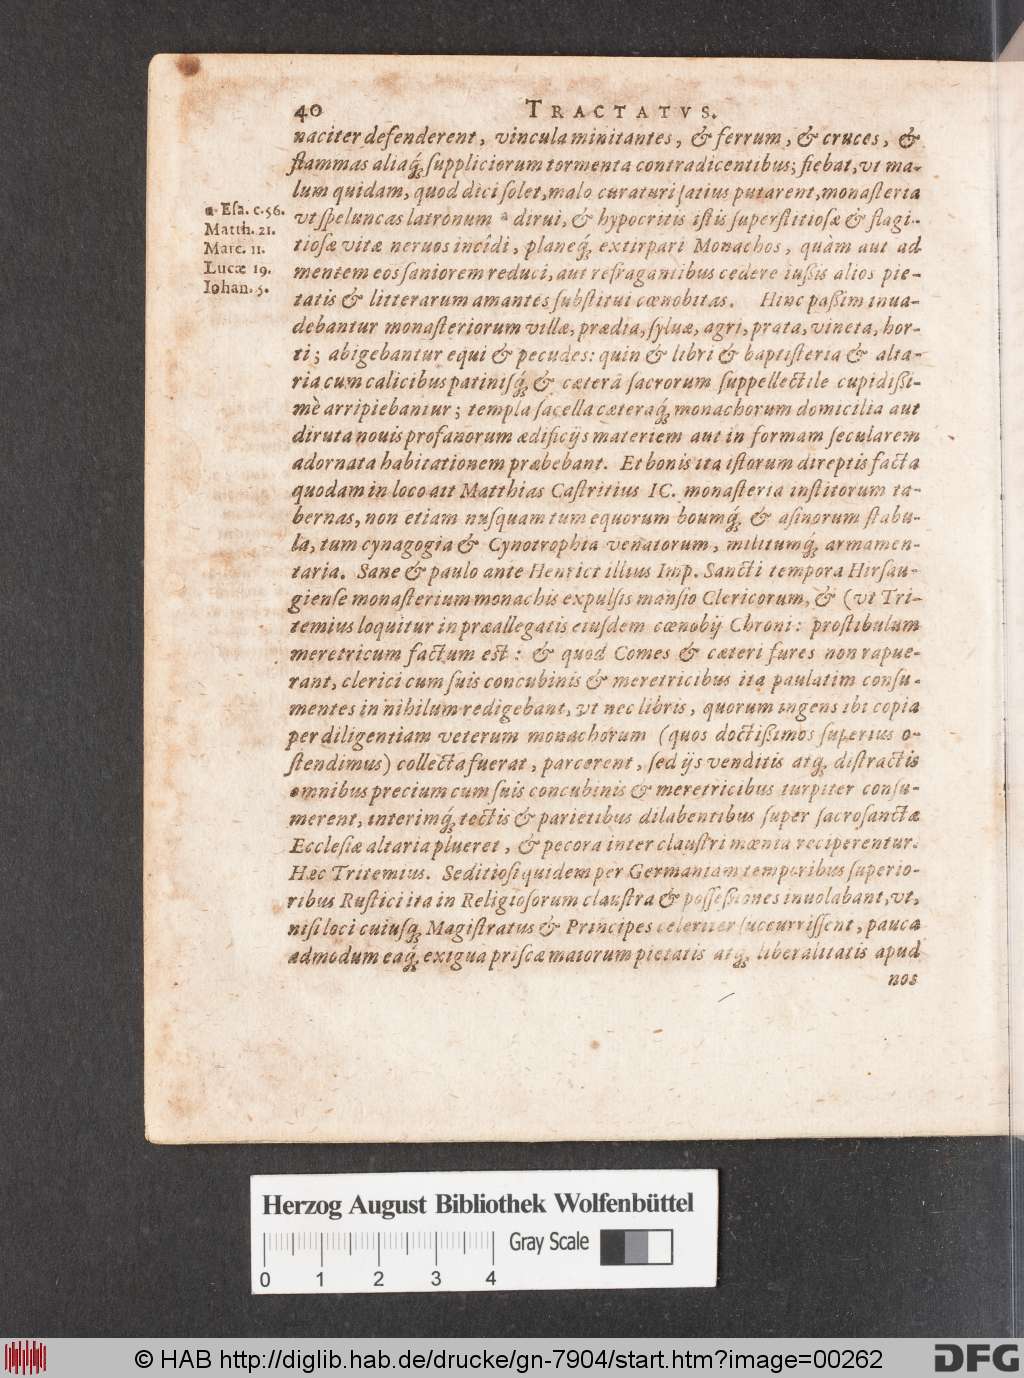 40 TRACTATVS.
naciter defenderent, vincula minitantes, & ferrum, & cruces, &
flammas aliaq́; ſuppliciorum tormenta contradicentibus; fiebat, vt ma-
lum quidam, quod dici ſolet, malo curaturi ſatius putarent, monaſteria
vt ſpeluncas latronum a dirui, & hypocritis iſtis ſuperſtitioſæ & flagi-
tioſæ vitæ neruos incîdi, planeq́; extirpari Monachos, quàm aut ad
mentem eos ſaniorem reduci, aut refragantibus cedere iuſſis alios pie-
tatis & litterarum amantes ſubſtitui cœnobitas. Hinc paßim inua-
debantur monaſteriorum villæ, prædia, ſyluæ, agri, prata, vineta, hor-
ti; abigebantur equi & pecudes: quin & libri & baptiſteria & alta-
ria cum calicibus patiniſq́; & cæterâ ſacrorum ſuppellectile cupidißi-
mè arripiebantur; templa ſacella cæteraq́; monachorum domicilia aut
diruta nouis profanorum ædificijs materiem aut in formam ſecularem
adornata habitationem præbebant. Et bonis ita iſtorum direptis facta
quodam in loco ait Matthias Caſtritius IC. monaſteria inſtitorum ta-
bernas, non etiam nuſquam tum equorum boumq́; & aſinorum ſtabu-
la, tum cynagogia & Cynotrophia venatorum, militumq́; armamen-
taria. Sane & paulo ante Henrici illius Imp. Sancti tempora Hirſau-
gienſe monaſterium monachis expulſis manſio Clericorum, & (vt Tri-
temius loquitur in præallegatis eiuſdem cœnobij Chroni: proſtibulum
meretricum factum eſt: & quod Comes & cæteri fures non rapue-
rant, clerici cum ſuis concubinis & meretricibus ita paulatim conſu-
mentes in nihilum redigebant, vt nec libris, quorum ingens ibi copia
per diligentiam veterum monachorum (quos doctißimos ſuperius o-
ſtendimus) collecta fuerat, parcerent, ſed ijs venditis atq́; diſtractis
omnibus precium cum ſuis concubinis & meretricibus turpiter conſu-
merent, interimq́; tectis & parietibus dilabentibus ſuper ſacroſanctæ
Eccleſiæ altaria plueret, & pecora inter clauſtri mœnia reciperentur.
Hæc Tritemius. Seditioſi quidem per Germaniam temporibus ſuperio-
ribus Ruſtici ita in Religioſorum clauſtra & poſſeſſiones inuolabant, vt,
niſi loci cuiuſq́; Magiſtratus & Principes celeriter ſuccurriſſent, pauca
admodum eaq́; exigua priſcæ maiorum pietatis atq́; liberalitatis apud
nos
a Eſa. c. 56.
Matth. 21.
Marc. 11.
Lucæ 19.
Iohan. 5.
Herzog August Bibliothek Wolfenbüttel
Gray Scale
0 1 2 3 4
© HAB http://diglib.hab.de/drucke/gn-7904/start.htm?image=00262
DFG